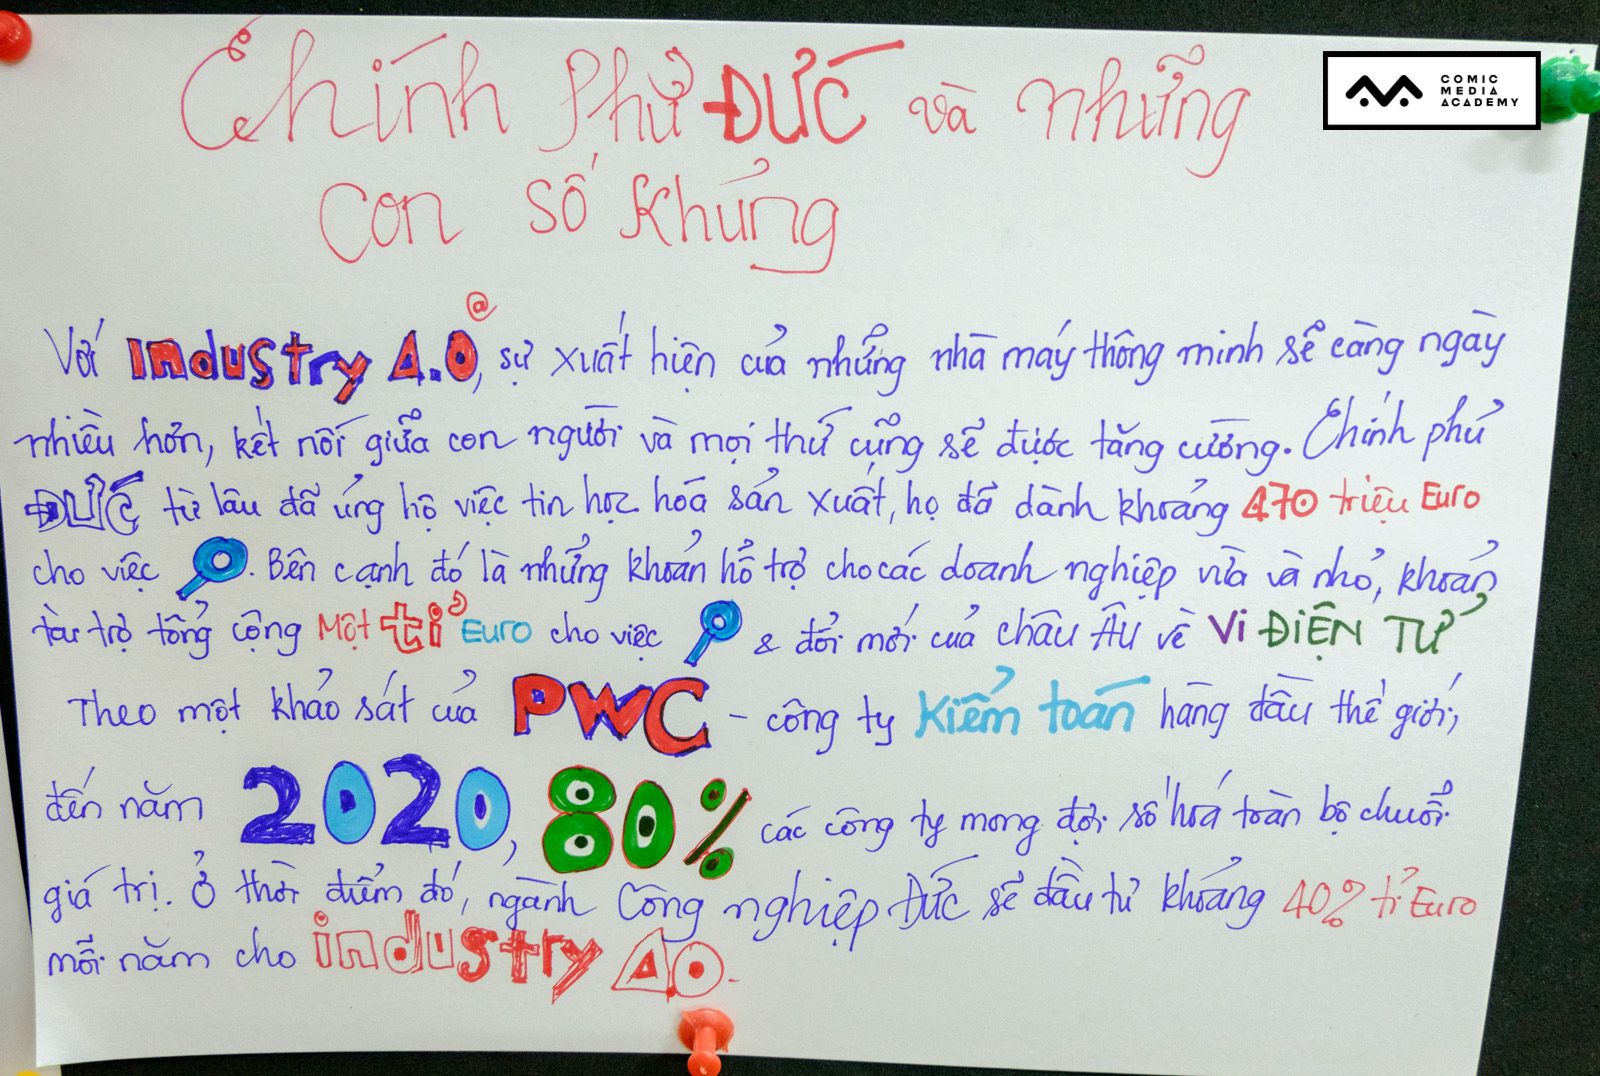 Chính Phủ ĐỨC và những
con số khủng
COMIC
MEDIA
ACADEMY
@
Với Industry 4.0, sự xuất hiện của những nhà máy thông minh sẽ càng ngày
nhiều hơn, kết nối giữa con người và mọi thứ cũng sẽ được tăng cường. Chính phủ
ĐỨC từ lâu đã ủng hộ việc tin học hóa sản xuất, họ đã dành khoảng 470 triệu Euro
cho việc . Bên cạnh đó là những khoản hỗ trợ cho các doanh nghiệp vừa và nhỏ, khoản
tài trợ tổng cộng Một tỉ Euro cho việc & đổi mới của châu Âu về Vi ĐIỆN TỬ
Theo một khảo sát của PWC - công ty kiểm toán hàng đầu thế giới,
đến năm 2020, 80% các công ty mong đợi số hoá toàn bộ chuỗi
giá trị. Ở thời điểm đó, ngành Công nghiệp Đức sẽ đầu tư khoảng 40% tỉ Euro
mỗi năm cho industry 4.0.